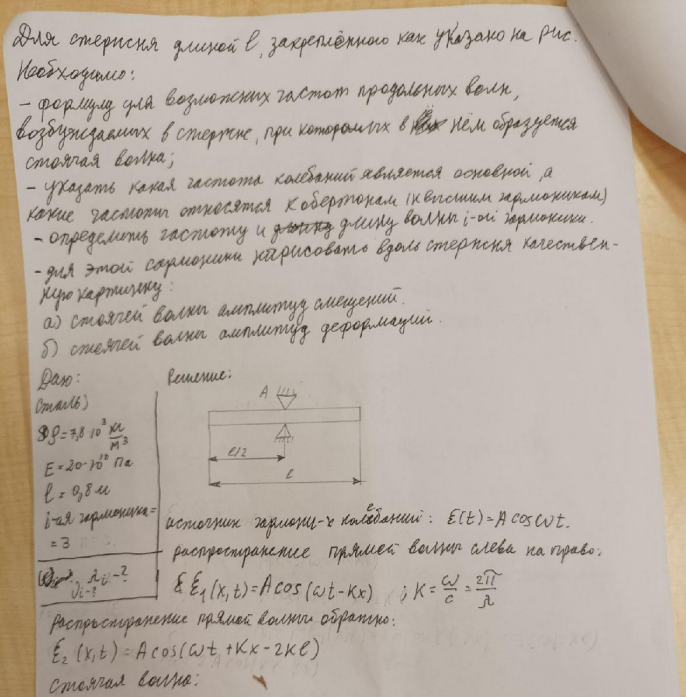 Для стержня длиной l, закреплённого как указано на рис.
Необходимо:
- формулу для возможных частот продольных волн,
возбуждаемых в стержне, при которых в нём образуется
стоячая волна;
- указать какая частота колебаний является основной, а
какие частоты относятся к обертонам (к высшим гармоникам)
- определить частоту и длину волны i-ой гармоники.
- для этой гармоники нарисовать вдоль стержня качествен-
ную картинку:
а) стоячей волны амплитуд смещений.
б) стоячей волны амплитуд деформаций.
Дано:
Сталь)
ρ=7,8·10³ кг/м³
E=20·10¹⁰ Па
l=0,8м
i-ая гармоника=
=3
Решение:
A
l/2
l
источник гармони-х колебаний: ξ(t)=A cosωt.
распространение прямой волны слева на право:
ξ₁(x,t)=Acos(ωt-Kx) ; K=ω/c=2π/λ
Распространение прямой волны обратно:
ξ₂(x,t)=Acos(ωt+Kx-2Kl)
Стоячая волна: